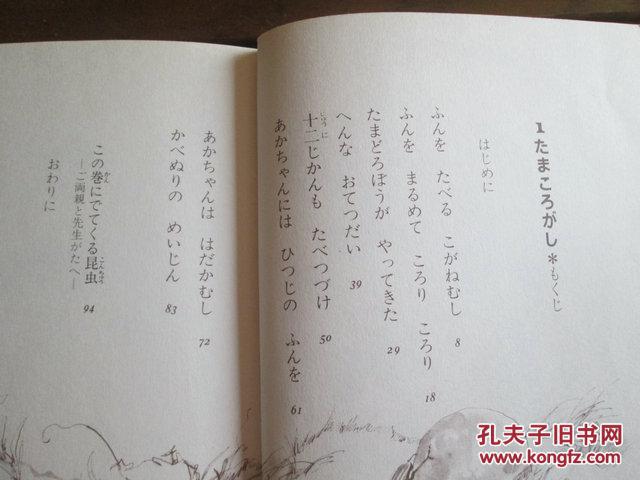 1 たまころがし＊もくじ
はじめに
ふんを たべる こがねむし 8
ふんを まるめて ころり ころり 18
たまどろぼうが やってきた 29
へんな おてつだい 39
十二じかんも たべつづけ 50
じゅうに
あかちゃんには ひつじの ふんを 61
あかちゃんは はだかむし 72
かべぬりの めいじん 83
この巻にでてくる昆虫 94
かん
こんちゅう
―ご両親と先生がたへ―
おわりに
孔夫子旧书网
www.kongfz.com